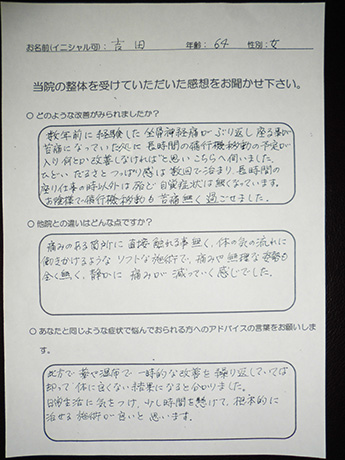 お名前(イニシャル可): 吉田 年齢: 64 性別: 女
当院の整体を受けていただいた感想をお聞かせ下さい。
○ どのような改善がみられましたか?
数年前に経験した坐骨神経痛がぶり返し座る事が
苦痛になっていた処に長時間の飛行機移動の予定が
入り何とか改善しなければ"と思いこちらへ伺いました。
ひどいだるさとつっぱり感は数回で治まり、長時間の
座り仕事の時以外は殆ど自覚症状は無くなっています。
お陰様で飛行機移動も苦痛無く過ごせました。
○ 他院との違いはどんな点ですか?
痛みのある箇所に直接触れる事無く、体の気の流れに
働きかけるようなソフトな施術で、痛みや無理な姿勢も
全く無く、静かに痛みが減っていく感じでした。
○ あなたと同じような症状で悩んでおられる方へのアドバイスの言葉をお願いしま
す。
処方で薬や湿布で一時的な改善を繰り返していては
却って体に良くない結果になると分かりました。
日常生活に気をつけ、少し時間を懸けて、根本的に
治せる施術が良いと思います。